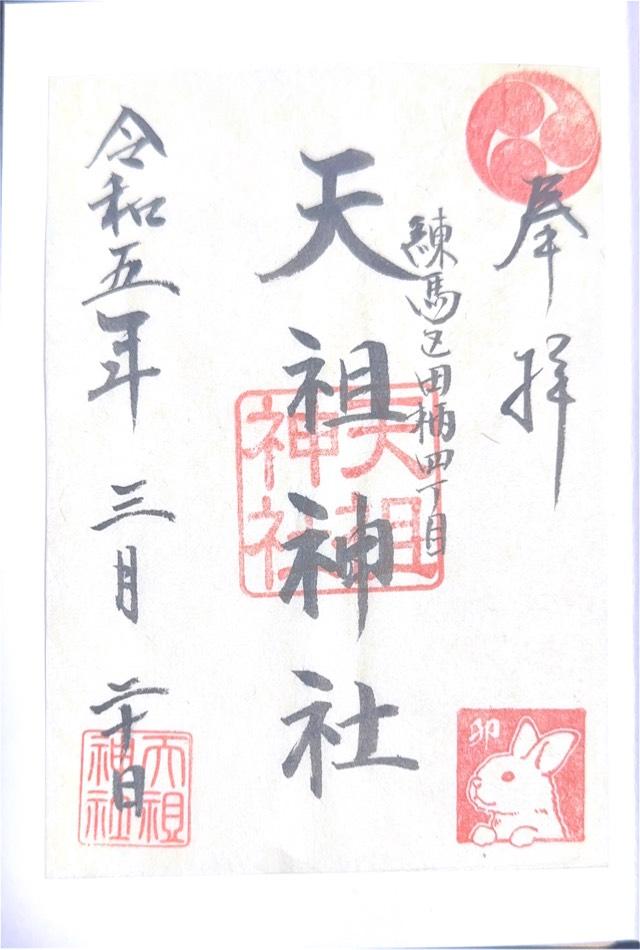 奉拝
練馬区田柄四丁目
天祖神社
天祖神社
令和五年三月二十日
天祖神社
卯